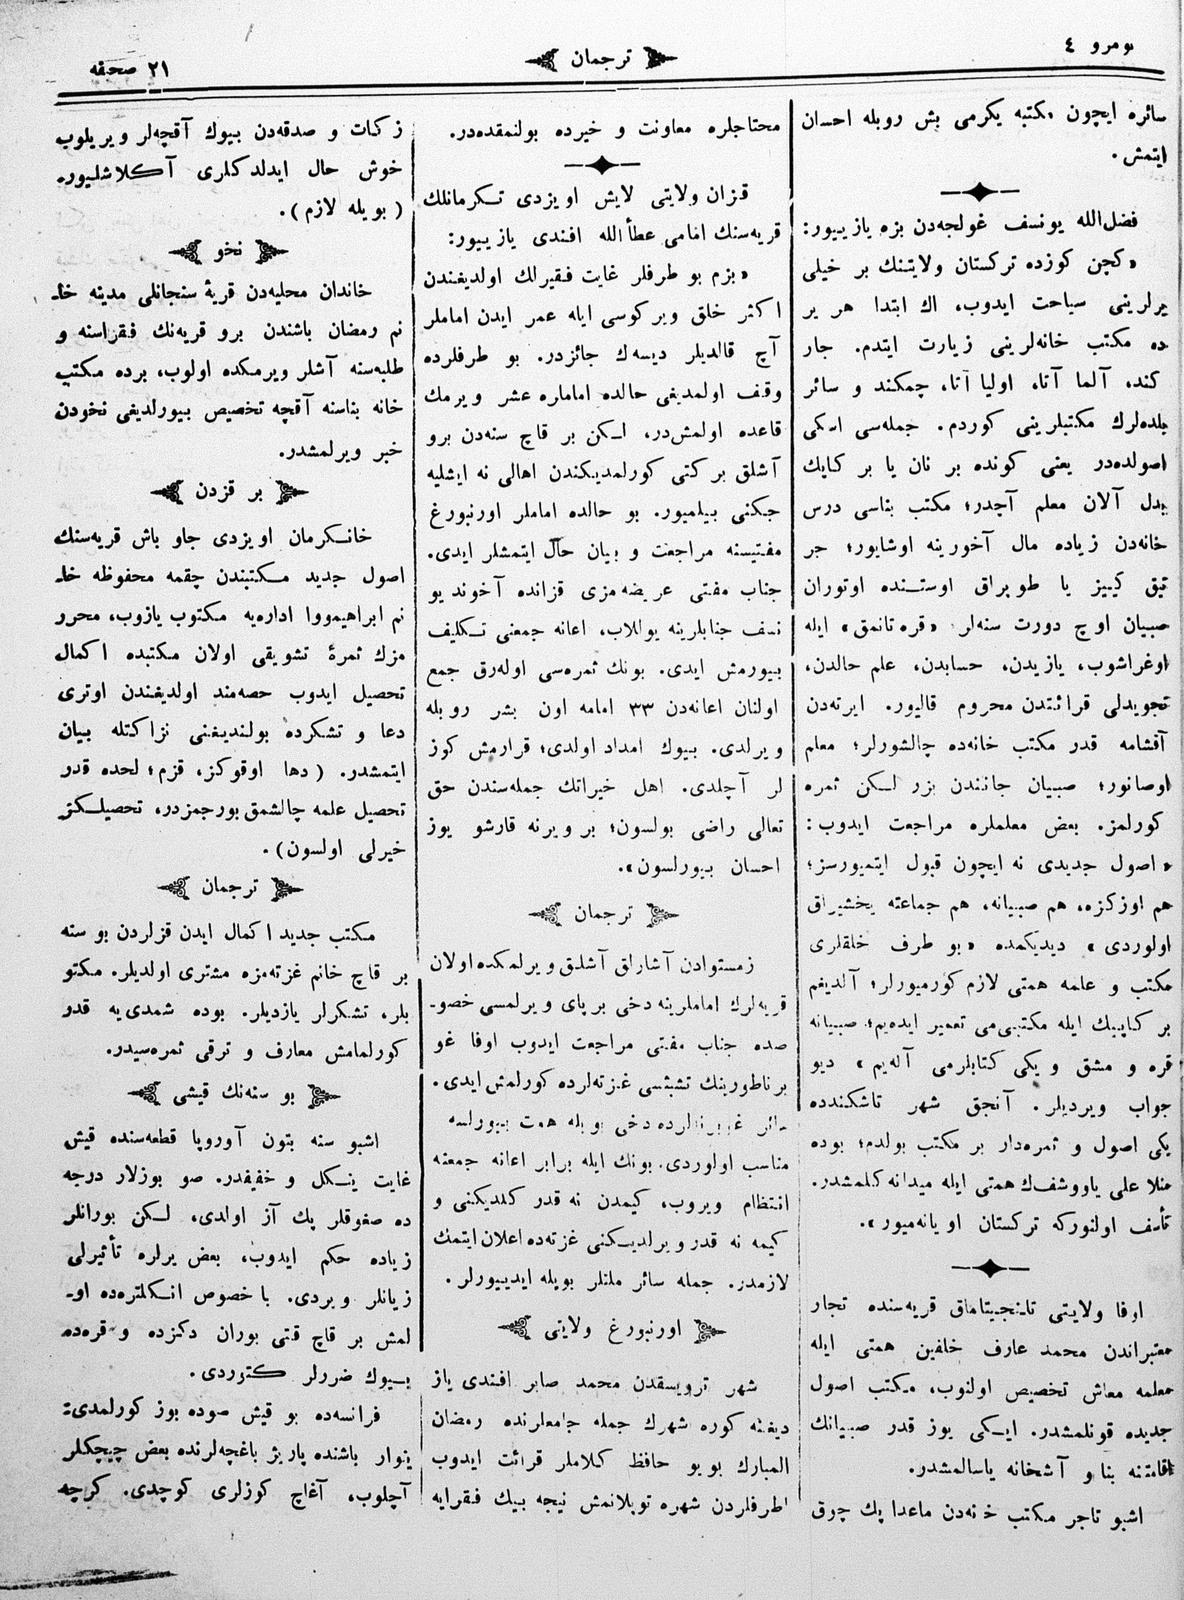 نومرو ٤
ترجمان
٢١ صحفه
سائره ایچون مکتبه یکرمی بش روبله احسان
ایتمش.
فضل‌الله یونسف غولجه‌دن بزه یازییور:
«کچن کوزده ترکستان ولایتنك بر خیلی
یرلرینی سیاحت ایدوب، اك ابتدا هر یر
ده مکتب خانه‌لرینی زیارت ایتدم. جار
کند، آلما آتا، اولیا آتا، چمکند و سائر
بلده‌لرك مکتبلرینی کوردم. جمله‌سی اسکی
اصولده‌در یعنی کونده بر نان یا بر کپك
بدل آلان معلم آچدر؛ مکتب بناسی درس
خانه‌دن زیاده مال آخورینه اوشایور؛ جر
تیق کییز یا طوپراق اوستنده اوتوران
صبیان اوچ دورت سنه‌لر «قره تانمق» ایله
اوغراشوب، یازیدن، حسابدن، علم حالدن،
تجویدلی قرائتدن محروم قالیور. ایرته‌دن
آقشامه قدر مکتب خانه‌ده چالشورلر؛ معلم
اوصانور؛ صبیان جانندن بزر لکن ثمره
کورلمز. بعض معلملره مراجعت ایدوب:
«اصول جدیدی نه ایچون قبول ایتمیورسز؛
هم اوزکزه، هم صبیانه، هم جماعته یخشیراق
اولوردی» دیدیکمده «بو طرف خلقلری
مکتب و علمه همتی لازم کورمیورلر؛ آلدیغم
بر کاپیك ایله مکتبی‌می تعمیر ایده‌یم؛ صبیانه
قره و مشق و یکی کتابلرمی آله‌یم» دیو
جواب ویردیلر. آنجق شهر تاشکندده
یکی اصول و ثمره‌دار بر مکتب بولدم؛ بوده
منلا علی یاووشف‌ك همتی ایله میدانه کلمشدر.
تأسف اولنورکه ترکستان اویانه‌میور».
اوفا ولایتی تلنجیتاماق قریه‌سنده تجار
معتبراندن محمد عارف خلفین همتی ایله
معلمه معاش تخصیص اولنوب، مکتب اصول
جدیده قونلمشدر. ایکی یوز قدر صبیانك
اقامتنه بنا و آشخانه یاسالمشدر.
اشبو تاجر مکتب خانه‌دن ماعدا پك چوق
محتاجلره معاونت و خیرده بولنمقده‌در.
قزان ولایتی لایش اویزدی تکرمانلك
قریه‌سنك امامی عطأالله افندی یازییور:
«بزم بو طرفلر غایت فقیرلك اولدیغندن
اکثر خلق ویرکوسی ایله عمر ایدن اماملر
آچ قالدیلر دیسه‌ك جائزدر. بو طرفلرده
وقف اولمدیغی حالده اماماره عشر ویرمك
قاعده اولمش‌در، لکن بر قاچ سنه‌دن برو
آشلق برکتی کورلمدیکندن اهالی نه ایشلیه
جکنی بیلمیور. بو حالده اماملر اورنبورغ
مفتیسنه مراجعت و بیان حال ایتمشلر ایدی.
جناب مفتی عریضه‌مزی قزانده آخوند یو
نسف جنابلرینه یوللاب، اعانه جمعنی تکلیف
بیورمش ایدی. بونك ثمره‌سی اوله‌رق جمع
اولنان اعانه‌دن ٣٣ امامه اون بشر روبله
ویرلدی. بیوك امداد اولدی؛ قرارمش کوز
لر آچلدی. اهل خیراتك جمله‌سندن حق
تعالی راضی بولسون؛ بر ویرنه قارشو یوز
احسان بیورلسون».
ترجمان
زمستوادن آشاراق آشلق ویرلمکده اولان
قریه‌لرك اماملرینه دخی بر پای ویرلمسی خصو-
صده جناب مفتی مراجعت ایدوب اوفا غو
برناطورینك تشبثسی غزته‌لرده کورلمش ایدی.
دخی بویله همت بیورلسه
مناسب اولوردی. بونك ایله برابر اعانه جمعنه
انتظام ویروب، کیمدن نه قدر کلدیکنی و
کیمه نه قدر ویرلدیکنی غزته‌ده اعلان ایتمك
لازمدر. جمله سائر ملتلر بویله ایدییورلر.
اورنبورغ ولایتی
شهر ترویسقدن محمد صابر افندی یاز
دیغنه کوره شهرك جمله جامعلرنده رمضان
المبارك بویو حافظ کلاملر قرائت ایدوب
اطرفلردن شهره توپلانمش نیجه بیك فقرایه
زکات و صدقه‌دن بیوك آقچه‌لر ویریلوب
خوش حال ایدلدکلری آکلاشلیور.
(بویله لازم).
نخو
خاندان محلیه‌دن قریۀ سنجانلی مدینه خا-
نم رمضان باشندن برو قریه‌نك فقراسنه و
طلبه‌سنه آشلر ویرمکده اولوب، برده مکتب
خانه بناسنه آقچه تخصیص بیورلدیغی نخودن
خبر ویرلمشدر.
بر قزدن
خانکرمان اویزدی جاو باش قریه‌سنك
اصول جدید مکتبندن چقمه محفوظه خا-
نم ابراهیمووا اداره‌یه مکتوب یازوب، محرر
مزك ثمرۀ تشویقی اولان مکتبده اکمال
تحصیل ایدوب حصه‌مند اولدیغندن اوتری
دعا و تشکرده بولندیغنی نزاکتله بیان
ایتمشدر. (دها اوقوکز، قزم؛ لحده قدر
تحصیل علمه چالشمق بورجمزدر، تحصیلکز
خیرلی اولسون).
ترجمان
مکتب جدید اکمال ایدن قزلردن بو سنه
بر قاچ خانم غزته‌مزه مشتری اولدیلر. مکتو
بلر، تشکرلر یازدیلر. بوده شمدی‌یه قدر
کورلمامش معارف و ترقی ثمره‌سیدر.
بو سنه‌نك قیشی
اشبو سنه بتون آوروپا قطعه‌سنده قیش
غایت ینکل و خفیفدر. صو بوزلار درجه
ده صغوقلر پك آز اولدی، لکن بورانلر
زیاده حکم ایدوب، بعض یرلره تأثیرلی
زیانلر ویردی. باخصوص انکلتره‌ده او-
لمش بر قاچ قتی بوران دکزده و قره‌ده
بیوك ضررلر کتوردی.
فرانسه‌ده بو قیش صوده بوز کورلمدی:
ینوار باشنده پاریژ باغچه‌لرنده بعض چیچکلر
آچلوب، آغاچ کوزلری کوچدی. کرچه